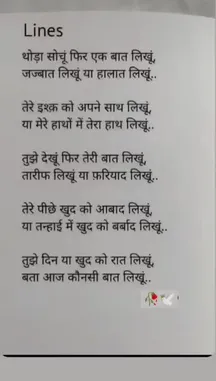 Lines
थोड़ा सोचूं फिर एक बात लिखूं,
जज्बात लिखूं या हालात लिखूं..
तेरे इश्क़ को अपने साथ लिखूं,
या मेरे हाथों में तेरा हाथ लिखूं..
तुझे देखूं फिर तेरी बात लिखूं,
तारीफ लिखूं या फ़रियाद लिखूं..
तेरे पीछे खुद को आबाद लिखूं,
या तन्हाई में खुद को बर्बाद लिखूं..
तुझे दिन या खुद को रात लिखूं,
बता आज कौनसी बात लिखूं..